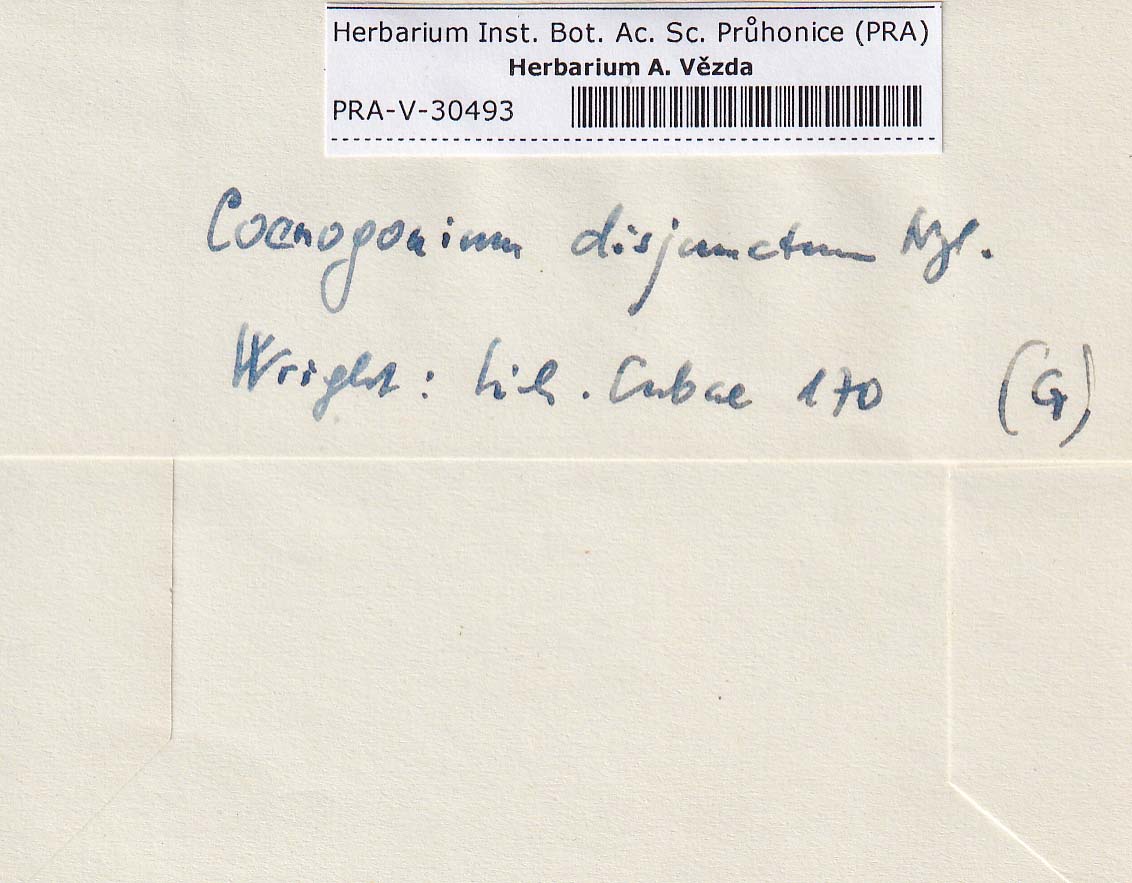 Herbarium Inst. Bot. Ac. Sc. Průhonice (PRA)
Herbarium A. Vězda
PRA-V-30493
Coenogonium disjunctum Nyl.
Wright: Lich. Cubae 170 (G)